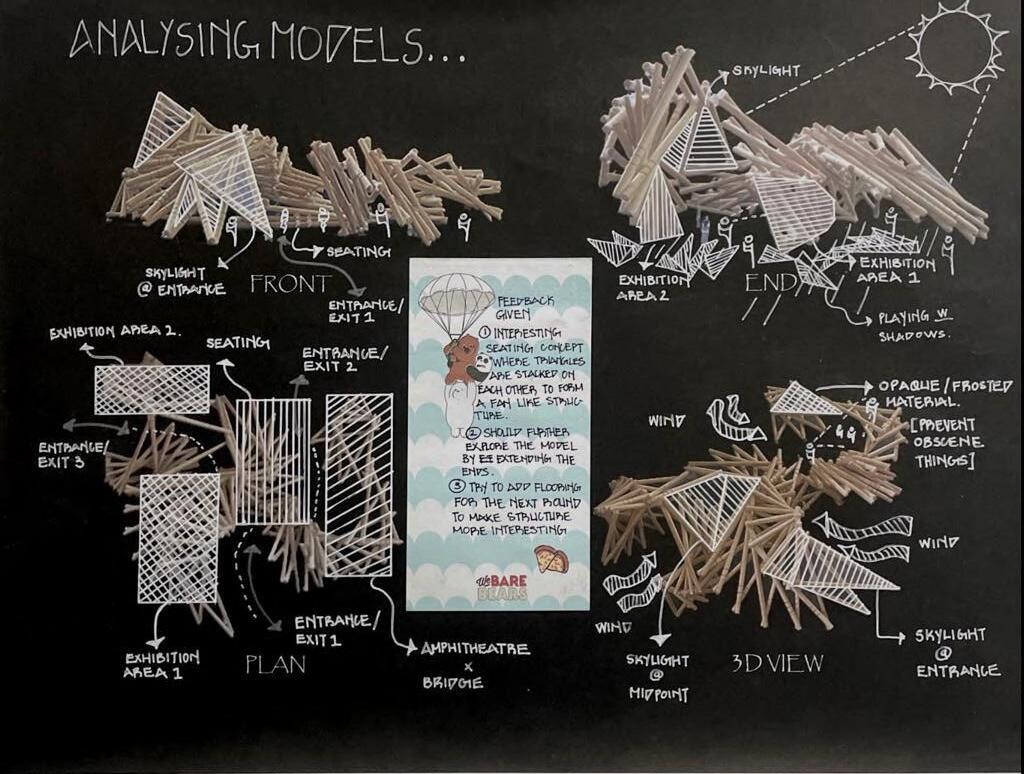 ANALYSING MODELS...
SKYLIGHT
@ ENTRANCE
FRONT
SEATING
ENTRANCE/
EXIT 1
SKYLIGHT
EXHIBITION
AREA 2
END
EXHIBITION
AREA 1
PLAYING W
SHADOWS.
EXHIBITION AREA 2.
SEATING
ENTRANCE/
EXIT 2
ENTRANCE/
EXIT 3
EXHIBITION
AREA 1
PLAN
ENTRANCE/
EXIT 1
AMPHITHEATRE
X
BRIDGE
FEEDBACK
GIVEN
① INTERESTING
SEATING CONCEPT
WHERE TRIANGLES
ARE STACKED ON
EACH OTHER TO FORM
A FAN LIKE STRUC-
TURE.
② SHOULD FURTHER
EXPLORE THE MODEL
BY EXTENDING THE
ENDS.
③ TRY TO ADD FLOORING
FOR THE NEXT ROUND
TO MAKE STRUCTURE
MORE INTERESTING
We BARE
BEARS
WIND
OPAQUE/FROSTED
MATERIAL.
[PREVENT
OBSCENE
THINGS]
WIND
WIND
SKYLIGHT
@
MIDPOINT
3D VIEW
SKYLIGHT
@
ENTRANCE